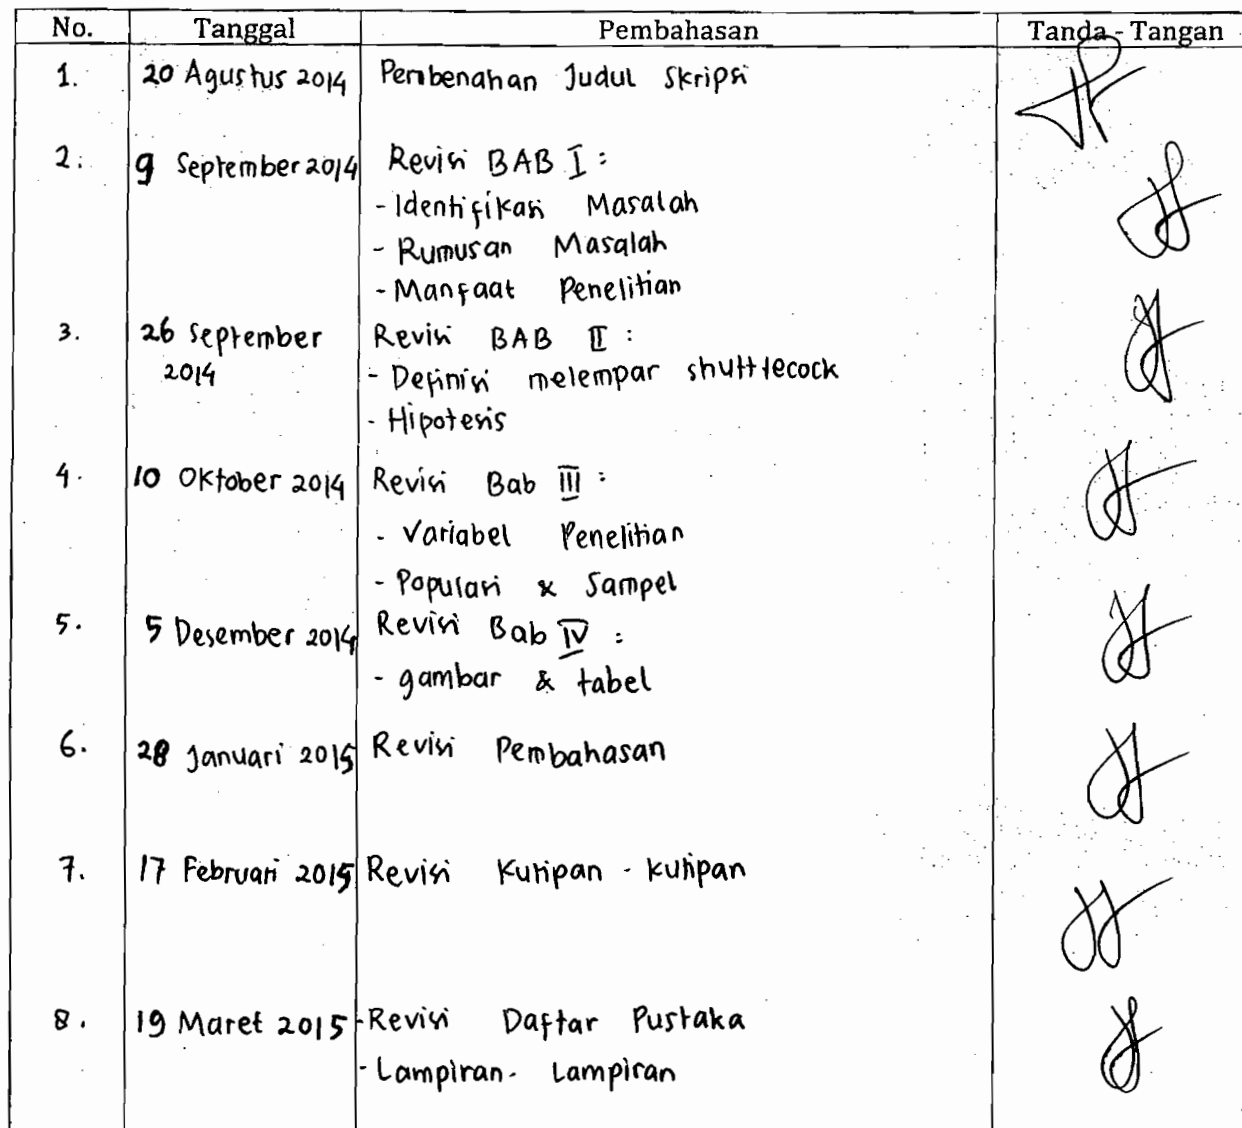 No. Tanggal Pembahasan Tanda - Tangan
1. 20 Agustus 2014 Pembenahan Judul Skripsi
2. 9 September 2014 Revisi BAB I :
- Identifikasi Masalah
- Rumusan Masalah
- Manfaat Penelitian
3. 26 September Revisi BAB II :
2014 - Definisi melempar shuttlecock
- Hipotesis
4. 10 Oktober 2014 Revisi Bab III :
- Variabel Penelitian
- Populasi & Sampel
5. 5 Desember 2014 Revisi Bab IV :
- gambar & tabel
6. 28 Januari 2015 Revisi Pembahasan
7. 17 Februari 2015 Revisi Kutipan - kutipan
8. 19 Maret 2015 - Revisi Daftar Pustaka
- Lampiran - Lampiran